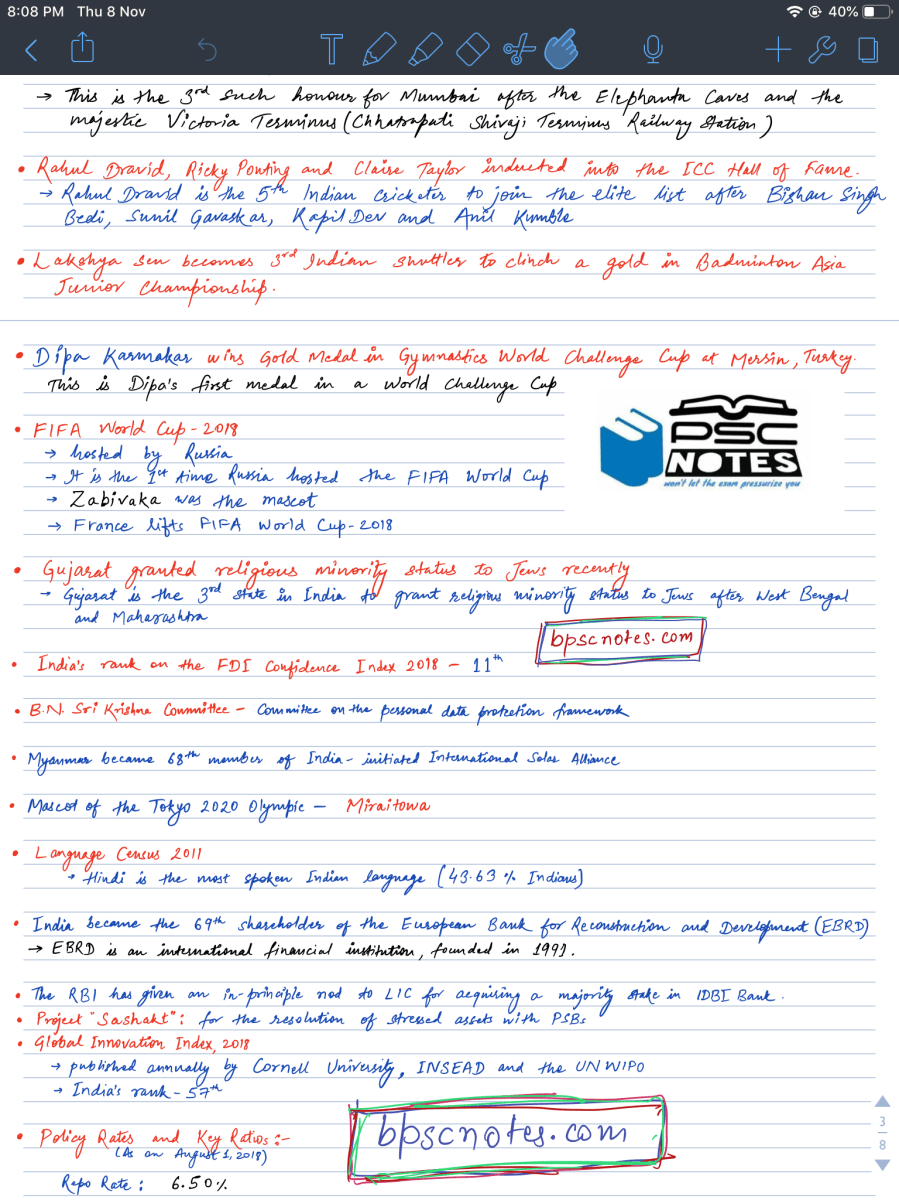 8:08 PM Thu 8 Nov
40%
T
→ This is the 3rd such honour for Mumbai after the Elephanta Caves and the
majestic Victoria Terminus (Chhatrapati Shivaji Terminus Railway Station)
• Rahul Dravid, Ricky Ponting and Claire Taylor inducted into the ICC Hall of Fame.
→ Rahul Dravid is the 5th Indian cricketer to join the elite list after Bishan Singh
Bedi, Sunil Gavaskar, Kapil Dev and Anil Kumble
• Lakshya Sen becomes 3rd Indian shuttler to clinch a gold in Badminton Asia
Junior Championship.
• Dipa Karmakar wins Gold Medal in Gymnastics World Challenge Cup at Mersin, Turkey.
This is Dipa's first medal in a World Challenge Cup
PSC
NOTES
won't let the exam pressurize you
• FIFA World Cup - 2018
→ hosted by Russia
→ It is the 1st time Russia hosted the FIFA World Cup
→ Zabivaka was the mascot
→ France lifts FIFA World Cup - 2018
• Gujarat granted religious minority status to Jews recently
→ Gujarat is the 3rd state in India to grant religious minority status to Jews after West Bengal
and Maharashtra
bpscnotes.com
• India's rank on the FDI Confidence Index 2018 - 11th
• B.N. Sri Krishna Committee - Committee on the personal data protection framework
• Myanmar became 68th member of India-initiated International Solar Alliance
• Mascot of the Tokyo 2020 Olympic - Miraitowa
• Language Census 2011
• Hindi is the most spoken Indian language (43.63 % Indians)
• India became the 69th shareholder of the European Bank for Reconstruction and Development (EBRD)
→ EBRD is an international financial institution, founded in 1991.
• The RBI has given an in-principle nod to LIC for acquiring a majority stake in IDBI Bank.
• Project "Sashakt": for the resolution of stressed assets with PSBs
• Global Innovation Index, 2018
→ published annually by Cornell University, INSEAD and the UN WIPO
→ India's rank - 57th
bpscnotes.com
• Policy Rates and Key Ratios :-
(As on August 1, 2018)
Repo Rate : 6.50%
3
8